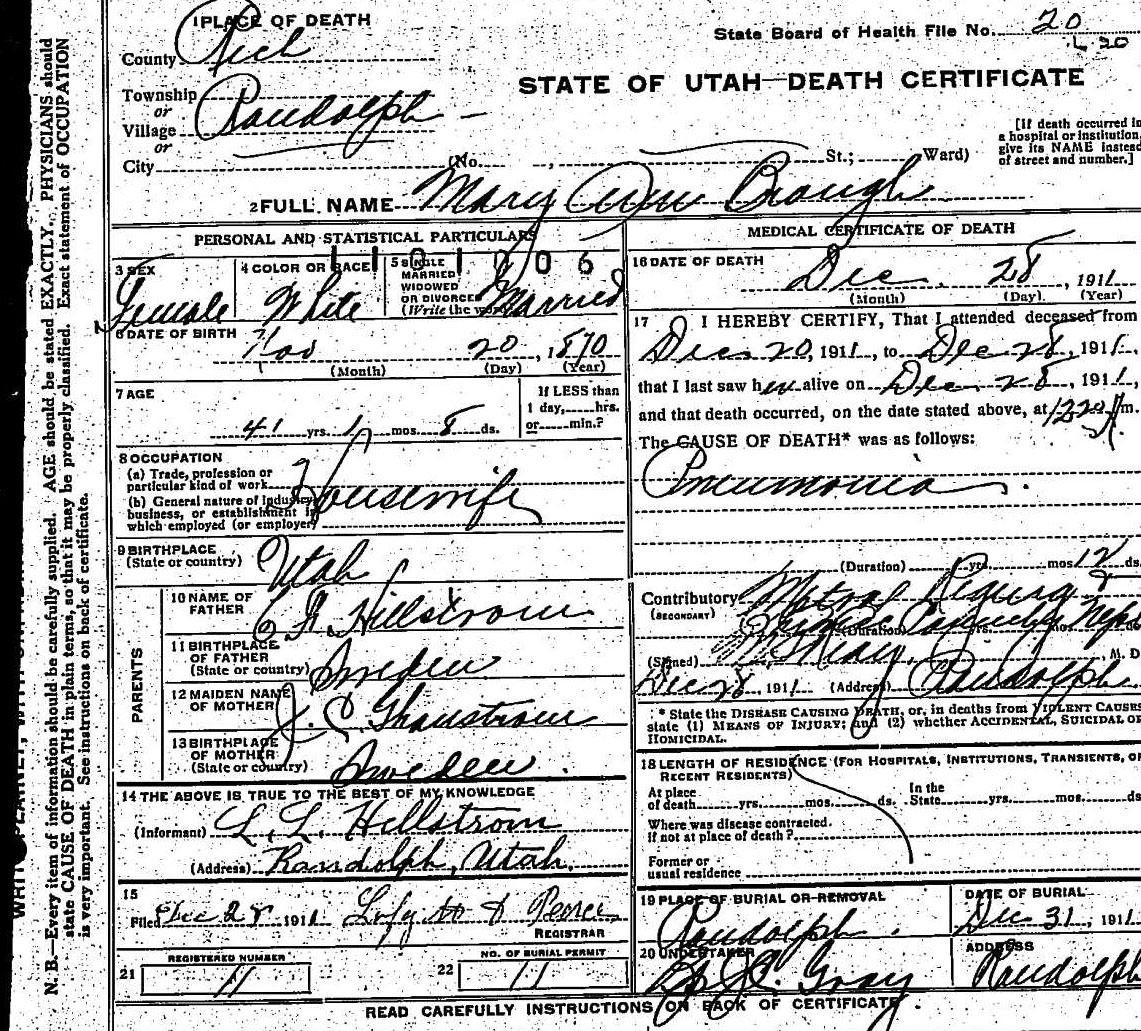 1 PLACE OF DEATH
State Board of Health File No. 20
County Rich
L 20
STATE OF UTAH—DEATH CERTIFICATE
Township
or
Village Randolph
or
City (No. , St.; Ward)
[If death occurred in
a hospital or institution,
give its NAME instead
of street and number.]
2 FULL NAME Mary Ann Brough
PERSONAL AND STATISTICAL PARTICULARS
3 SEX
Female
4 COLOR OR RACE
White
5 SINGLE
MARRIED
WIDOWED
OR DIVORCED
(Write the word)
Married
6 DATE OF BIRTH
Nov 20, 1870
(Month) (Day) (Year)
7 AGE
41 yrs. 1 mos. 8 ds.
If LESS than
1 day, hrs.
or min.?
8 OCCUPATION
(a) Trade, profession or
particular kind of work
(b) General nature of industry,
business, or establishment in
which employed (or employer)
Housewife
9 BIRTHPLACE
(State or country) Utah
PARENTS
10 NAME OF
FATHER Hillstrom
11 BIRTHPLACE
OF FATHER
(State or country) Sweden
12 MAIDEN NAME
OF MOTHER J. C.
13 BIRTHPLACE
OF MOTHER
(State or country) Sweden.
14 THE ABOVE IS TRUE TO THE BEST OF MY KNOWLEDGE
(Informant) L. L. Hellstrom
(Address) Randolph, Utah.
15
Filed Dec 28 1911 Pearce
REGISTRAR
21 REGISTERED NUMBER
11
22 NO. OF BURIAL PERMIT
11
MEDICAL CERTIFICATE OF DEATH
16 DATE OF DEATH
Dec. 28, 1911
(Month) (Day) (Year)
17 I HEREBY CERTIFY, That I attended deceased from
Dec 20, 1911, to Dec 28, 1911,
that I last saw her alive on Dec 28, 1911,
and that death occurred, on the date stated above, at 1220 m.
The CAUSE OF DEATH* was as follows:
Pneumonia.
(Duration) yrs. mos. 12 ds.
Contributory Mitral
(SECONDARY)
(Duration) yrs. mos.
(Signed) M. D.
Dec 28, 1911 (Address) Randolph.
* State the DISEASE CAUSING DEATH, or, in deaths from VIOLENT CAUSES
state (1) MEANS OF INJURY; and (2) whether ACCIDENTAL, SUICIDAL OR
HOMICIDAL.
18 LENGTH OF RESIDENCE (FOR HOSPITALS, INSTITUTIONS, TRANSIENTS, OR
RECENT RESIDENTS)
At place
of death yrs. mos. ds.
In the
State yrs. mos. ds.
Where was disease contracted.
If not at place of death?
Former or
usual residence
19 PLACE OF BURIAL OR REMOVAL
Randolph.
DATE OF BURIAL
Dec 31, 1911
20 UNDERTAKER
Gray
ADDRESS
Randolph
READ CAREFULLY INSTRUCTIONS ON BACK OF CERTIFICATE.
N. B.—Every item of information should be carefully supplied. AGE should be stated EXACTLY. PHYSICIANS should
state CAUSE OF DEATH in plain terms, so that it may be properly classified. Exact statement of OCCUPATION
is very important. See instructions on back of certificate.